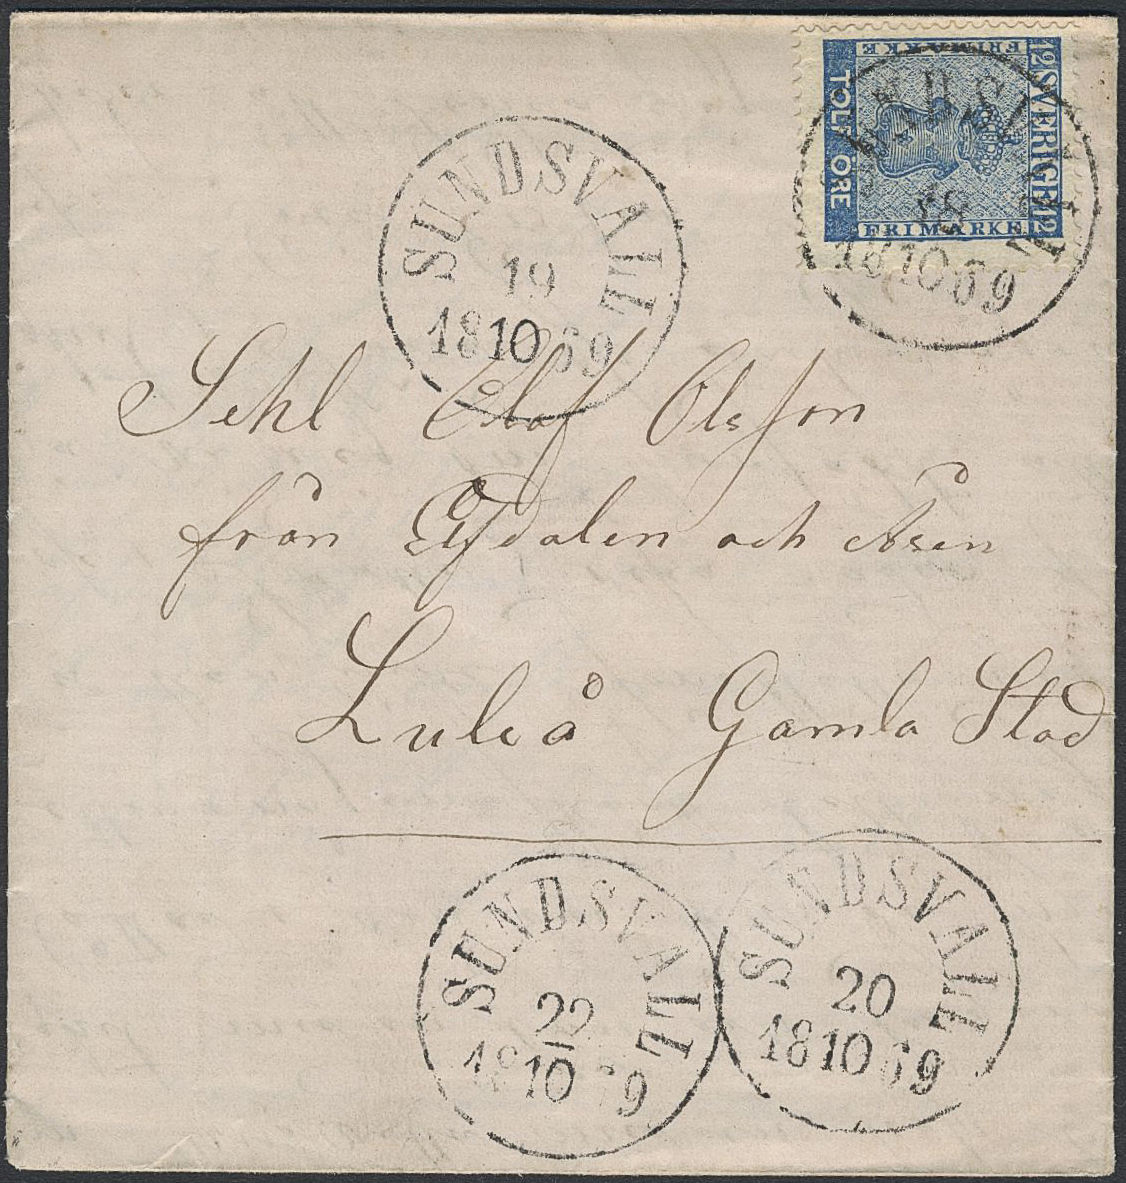 12 SVERIGE 12
FRIMÄRKE
FRIMÄRKE
TOLF ÖRE
18
18 10 69
SUNDSVALL
19
18 10 69
Olof Olsson
från Elfdalen och Åsen
Luleå Gamla Stad
SUNDSVALL
22
18 10 69
SUNDSVALL
20
18 10 69